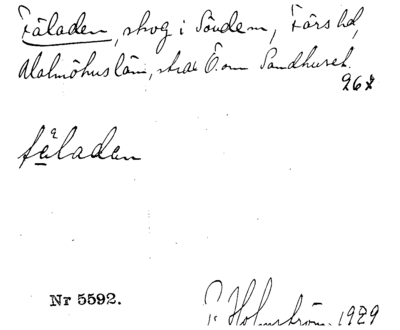 Fäladen, skog i Södem, Färs hd,
Malmöhus län, strax Ö. om Sandhuset.
26
fäladen
Nr 5592.
P. Holmström. 1929